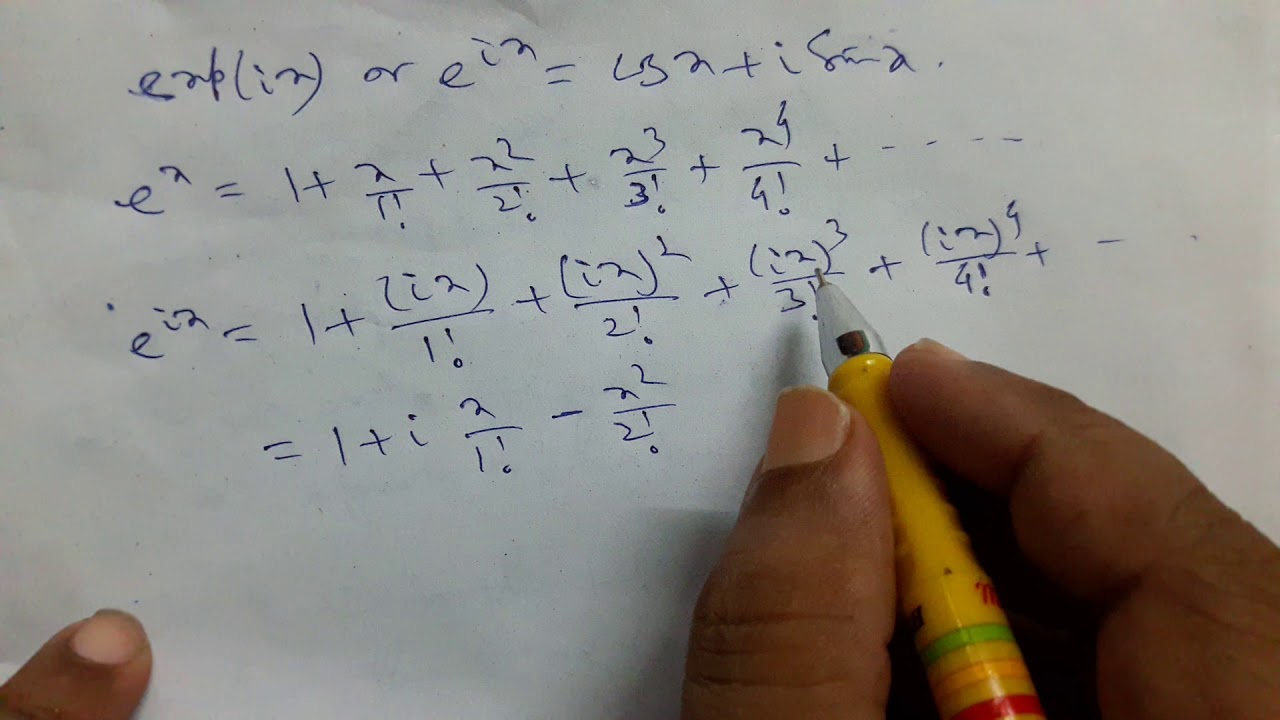 exp(ix) or e^{ix} = cos x + i Sin x.
e^x = 1 + x/1! + x^2/2! + x^3/3! + x^4/4! + - - - -
e^{ix} = 1 + (ix)/1! + (ix)^2/2! + (ix)^3/3! + (ix)^4/4! + -
= 1 + i x/1! - x^2/2!